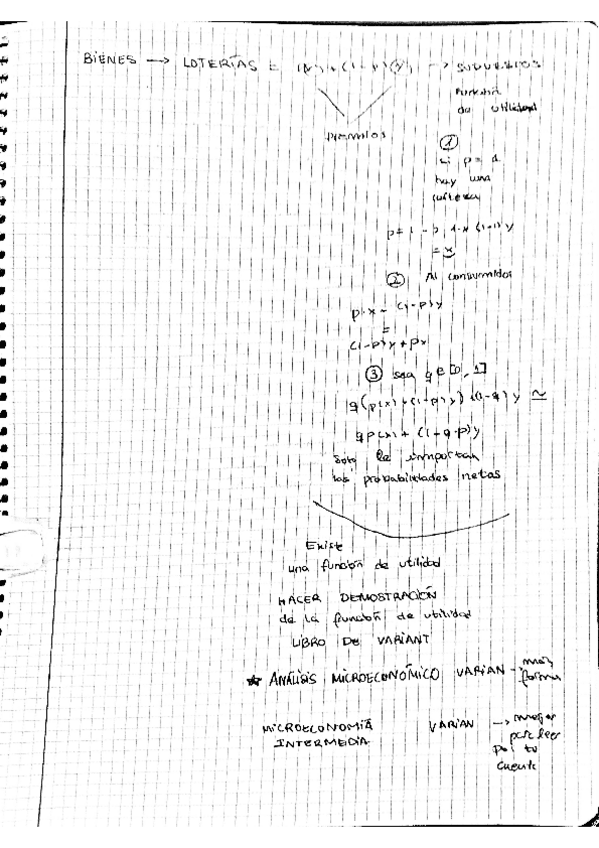 BIENES → LOTERÍAS
Función
de utilidad
premios
①
si p = 1
hay una
certeza
= x
② Al consumidor
(1-p)y + px
③ sea q ∈ [0, 1]
q(p(x) + (1-p)y) + (1-q)y ≃
qp(x) + (1-q·p)y
Solo le importan
las probabilidades netas
Existe
una función de utilidad
HACER DEMOSTRACIÓN
de la función de utilidad
LIBRO DE VARIANT
★ ANÁLISIS MICROECONÓMICO VARIAN → más
MICROECONOMÍA VARIAN → mejor
INTERMEDIA para leer
por tu
cuenta